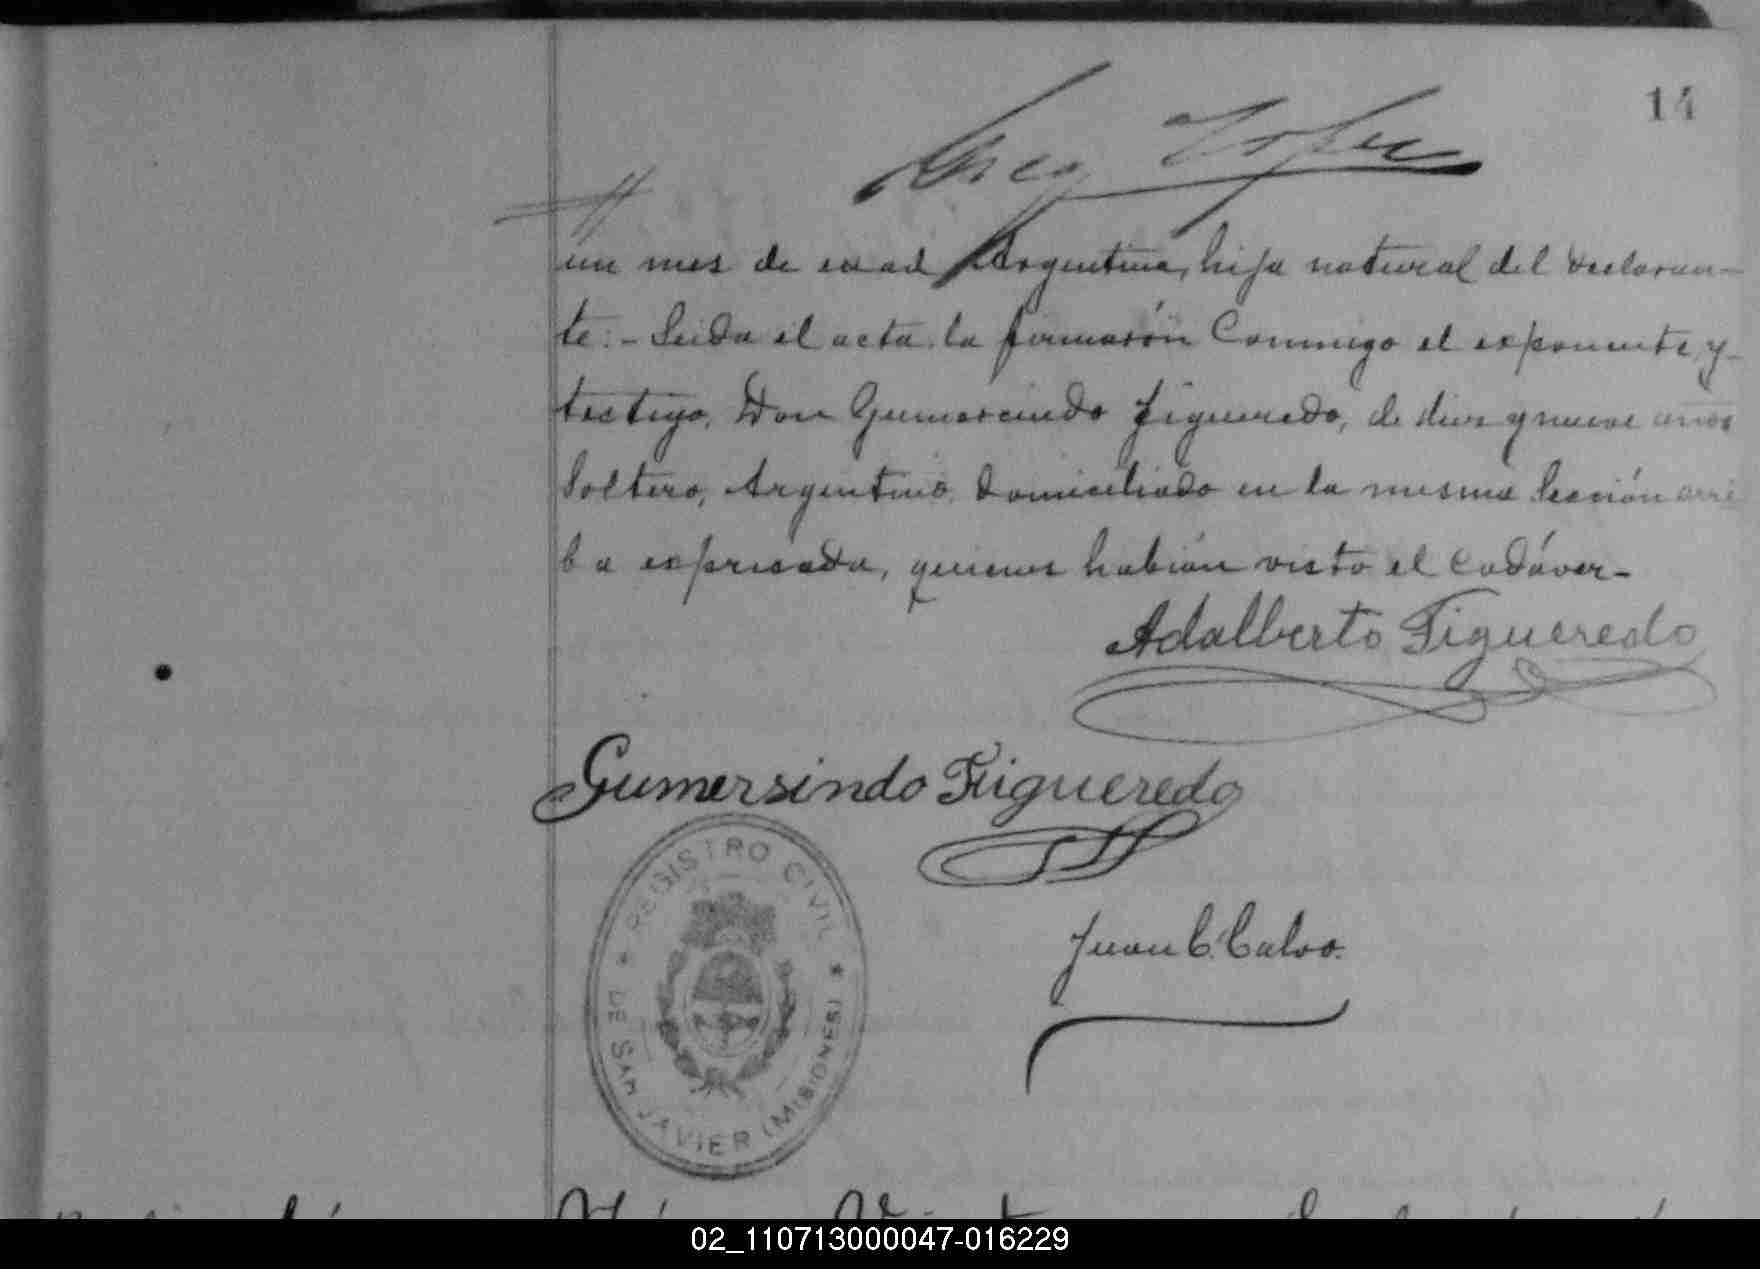 14
Greg Lopez
un mes de edad, Argentina, hija natural del declaran-
te:- Leida el acta la firmarón Conmigo el exponente y-
testigo, Don Gumercindo Figueredo, de diez y nueve años
Soltero, Argentino, domiciliado en la misma Sección arri
ba expresada, quienes habián visto el Cadáver-
Adalberto Figueredo
Gumersindo Figueredo
REGISTRO CIVIL
DE SAN JAVIER (MISIONES)
Juan C. Calvo.
02_110713000047-016229